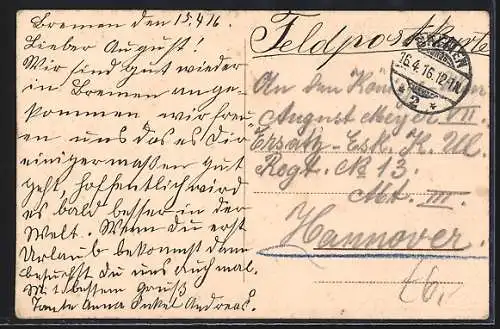 Bremen den 15.4.16.
Lieber August!
Wir sind gut wieder
in Bremen ange-
kommen wir freu-
en uns das es Dir
einigermaßen gut
geht, hoffentlich wird
es bald besser in der
Welt. Wenn Du erst
Urlaub bekomst dann
besuchst du uns auch mal.
Mit bestem Gruß
Tante Anna Onkel Andreas.
Feldpost-Karte
BREMEN
16.4.16.12-1N.
* 2 *
An den
August Meyer VII.
Ersatz-Esk. K. Ul.
Regt. No 13.
Mt. III.
Hannover.